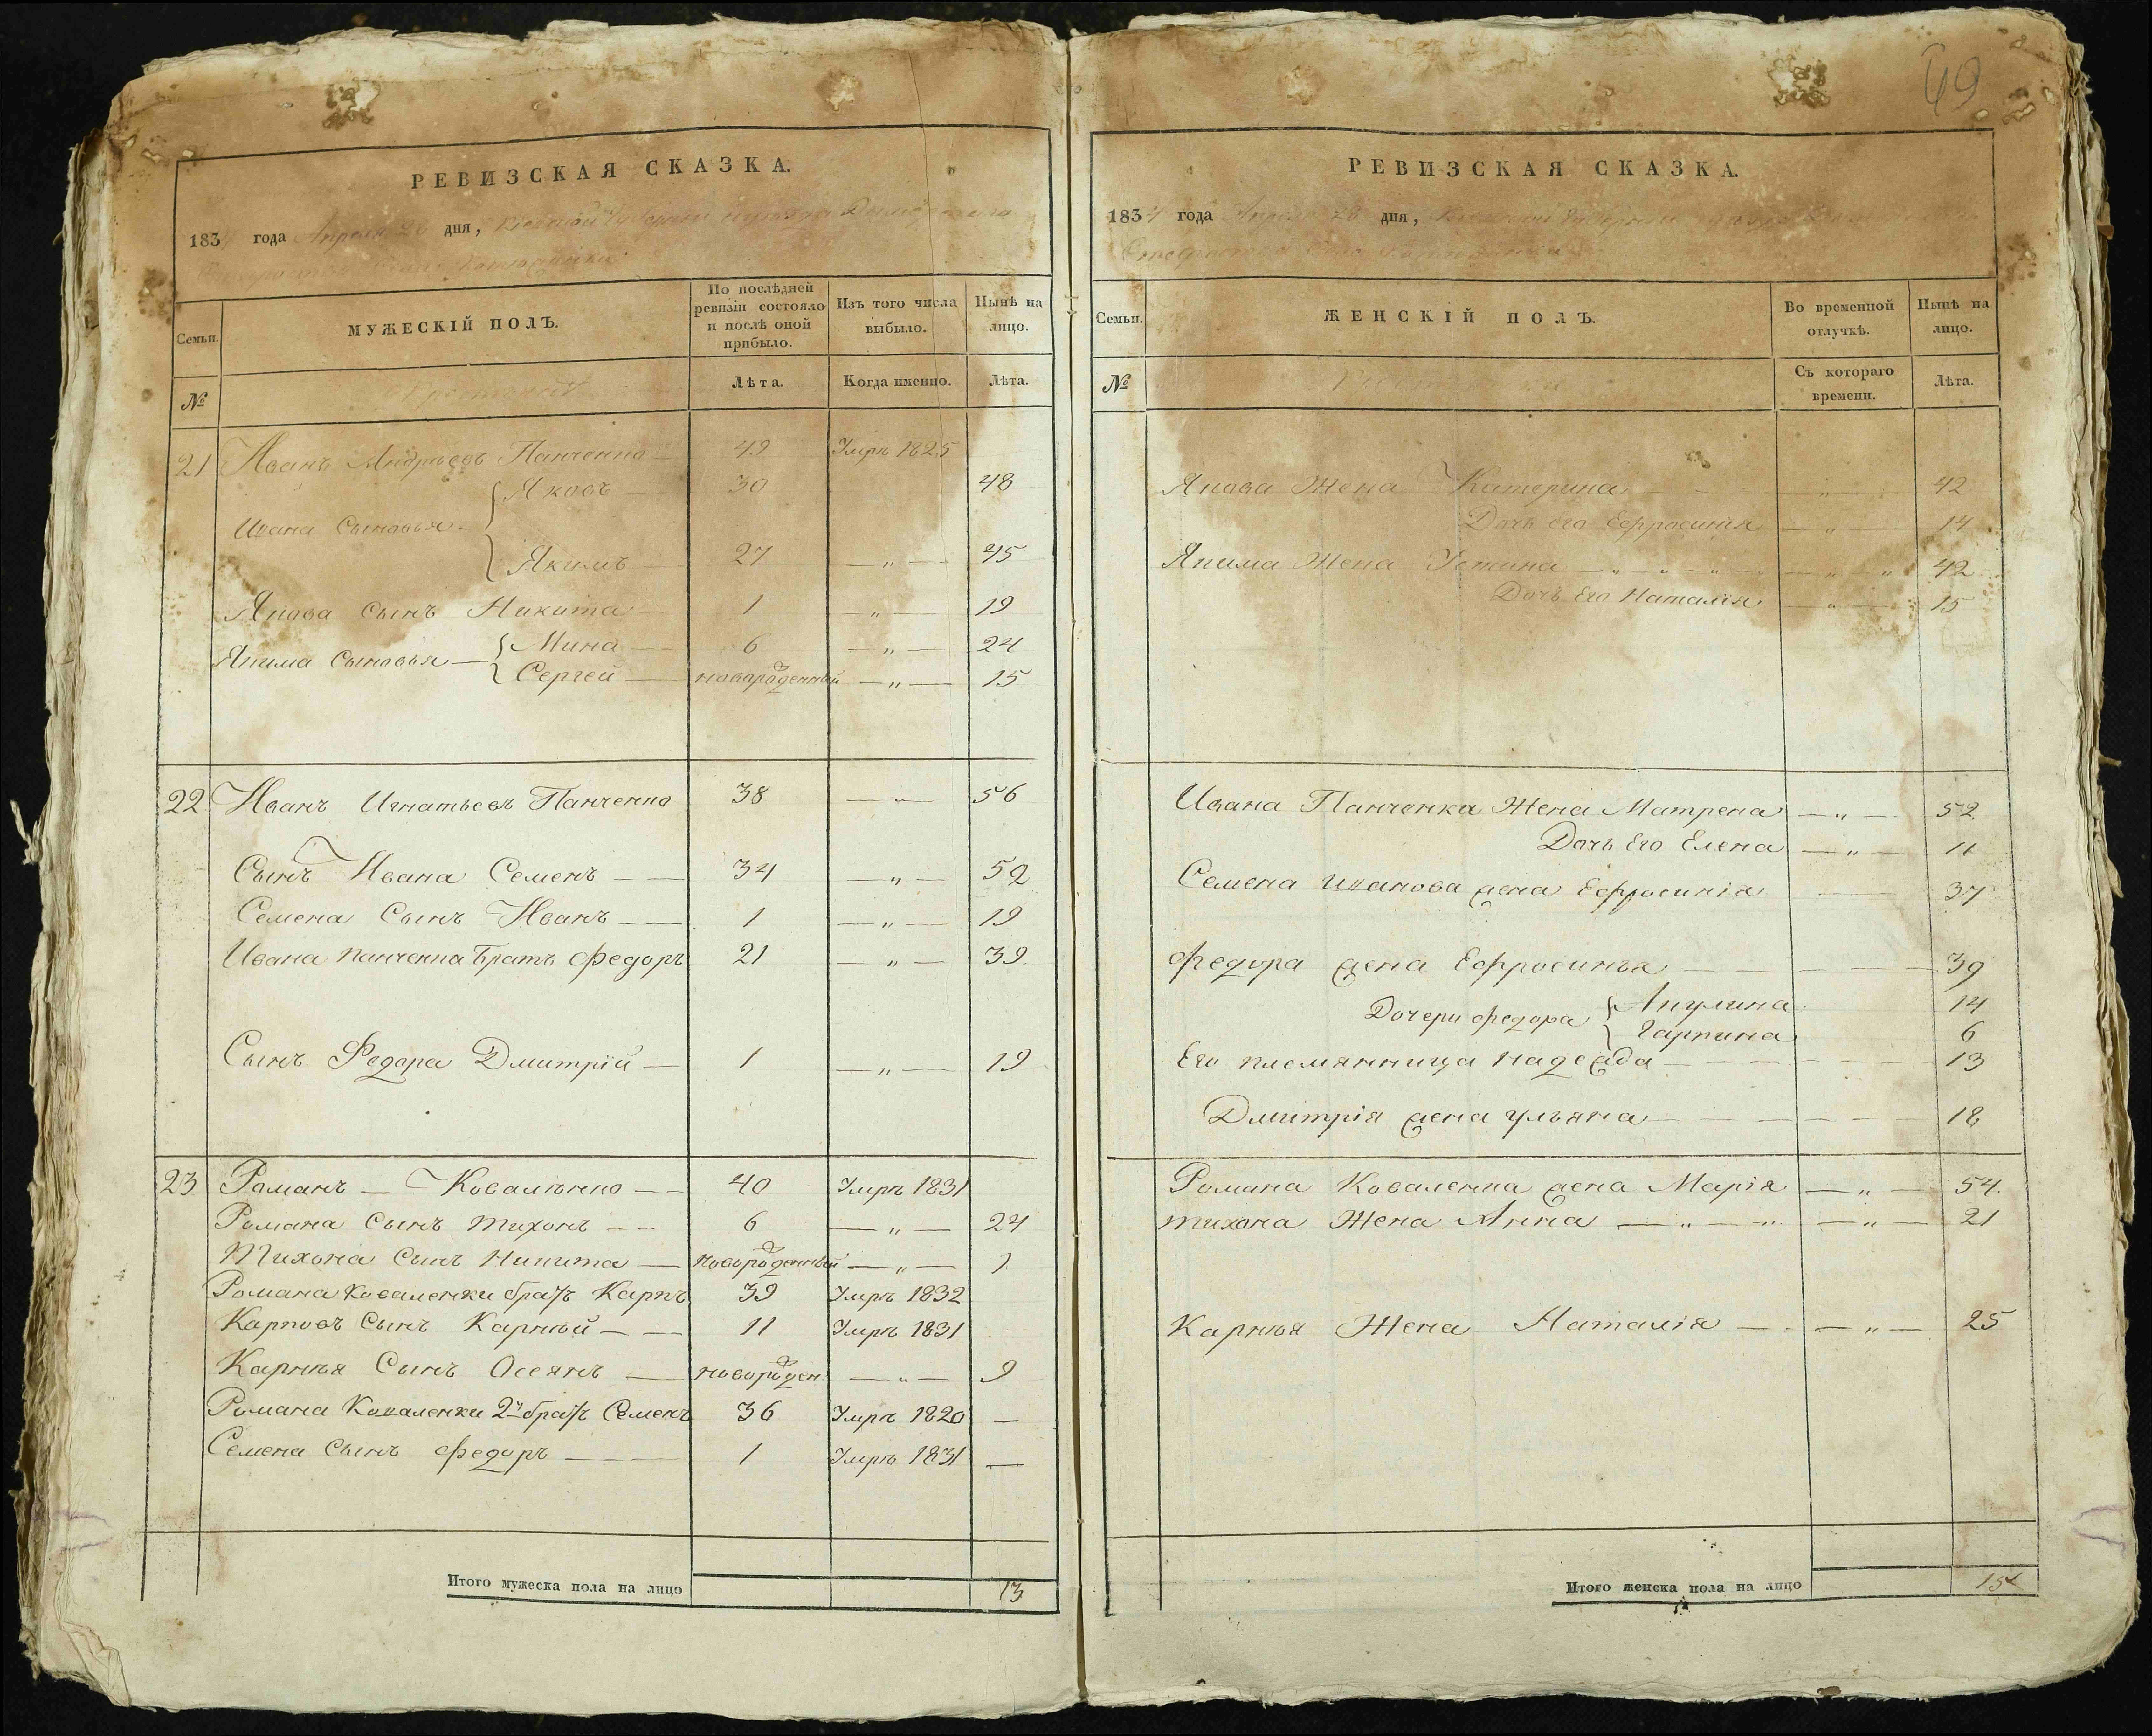 РЕВИЗСКАЯ СКАЗКА.
183 года Апреля 20 дня,
Семьи.
МУЖЕСКІЙ ПОЛЪ.
По послѣдней ревизіи состояло и послѣ оной прибыло.
Изъ того числа выбыло.
Нынѣ на лицо.
№
Лѣта.
Когда именно.
Лѣта.
21 Иванъ Андрѣевъ Панченко 49 Умръ 1825
Яковъ 30 48
Ивана Сыновья
Якимъ 27 — „ — 45
Якова Сынъ Никита 1 — „ — 19
Мина 6 — „ — 24
Якима Сыновья
Сергей новорожденный — „ — 15
22 Иванъ Игнатьевъ Панченко 38 — „ — 56
Сынъ Ивана Семенъ 34 — „ — 52
Семена Сынъ Иванъ 1 — „ — 19
Ивана Панченка Братъ Федоръ 21 — „ — 39
Сынъ Федора Дмитрій 1 — „ — 19
23 Романъ — Коваленко 40 Умръ 1831
Романа Сынъ Тихонъ 6 — „ — 24
Тихона Сынъ Никита новорожденный — „ — 1
Романа Коваленки братъ Карпъ 39 Умръ 1832
Карповъ Сынъ Карнѣй 11 Умръ 1831
Карнѣя Сынъ новорожден. — „ — 9
Романа Коваленки 2й братъ Семенъ 36 Умръ 1820 —
Семена Сынъ Федоръ 1 Умръ 1831 —
Итого мужеска пола на лицо 13
49
РЕВИЗСКАЯ СКАЗКА.
1834 года Апреля 20 дня,
Семьи.
ЖЕНСКІЙ ПОЛЪ.
Во временной отлучкѣ.
Нынѣ на лицо.
№
Съ котораго времени.
Лѣта.
Якова Жена Катерина — „ — 42
Дочь Его Ефросинія — „ — 14
Якима Жена Устина — „ — „ — „ — „ — „ 42
Дочь Его Наталія — „ — 15
Ивана Панченка Жена Матрена — „ — 52
Дочь Его Елена — „ — 11
Семена Иванова жена Ефросинія 37
Федора жена Ефросинья 39
Акулина 14
Дочери Федора
Гарпина 6
Его племянница Надежда 13
Дмитрія жена Ульяна 18
Романа Коваленка жена Марія — „ — 54
Тихона Жена Анна — „ — „ — „ — 21
Карнѣя Жена Наталія — „ — 25
Итого женска пола на лицо 15